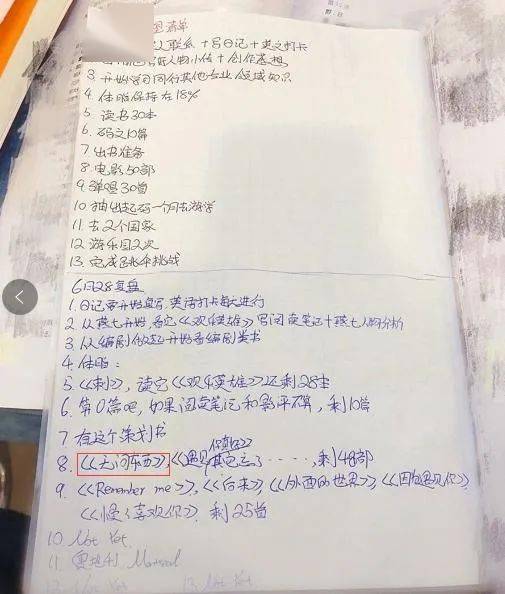 清单
联系+写日记+英文打卡
人物小传+创作
3. 开始学习同行其他专业领域知识
4. 体脂保持在18%
5. 读书30本
6. 码文10篇
7. 出书准备
8. 电影50部
9. 弹唱30首
10. 抽出起码一个月去游学
11. 去2个国家
12. 游乐园2次
13. 完成跳伞挑战
6月28复盘
1. 日记要开始复写, 英语打卡每天进行
2. 从燕七开始, 看完《欢乐英雄》写阅读笔记+燕七人物分析
3. 从编剧做起 开始看编剧类书
4. 体脂:
5. 《刺》, 读完《欢乐英雄》还剩28本
6. 算0篇吧, 如果阅读笔记和影评不算, 剩10篇
7. 在这个策划书
你真好》
8. 《无问西东》, 《遇见 其它忘了·····, 剩48部
9. 《Remember me》, 《后来》, 《外面的世界》, 《因为遇见你》
《怪你喜欢你》. 剩25首
10. Not Yet.
11. 奥地利
12. Not Yet. 13. Not Yet.